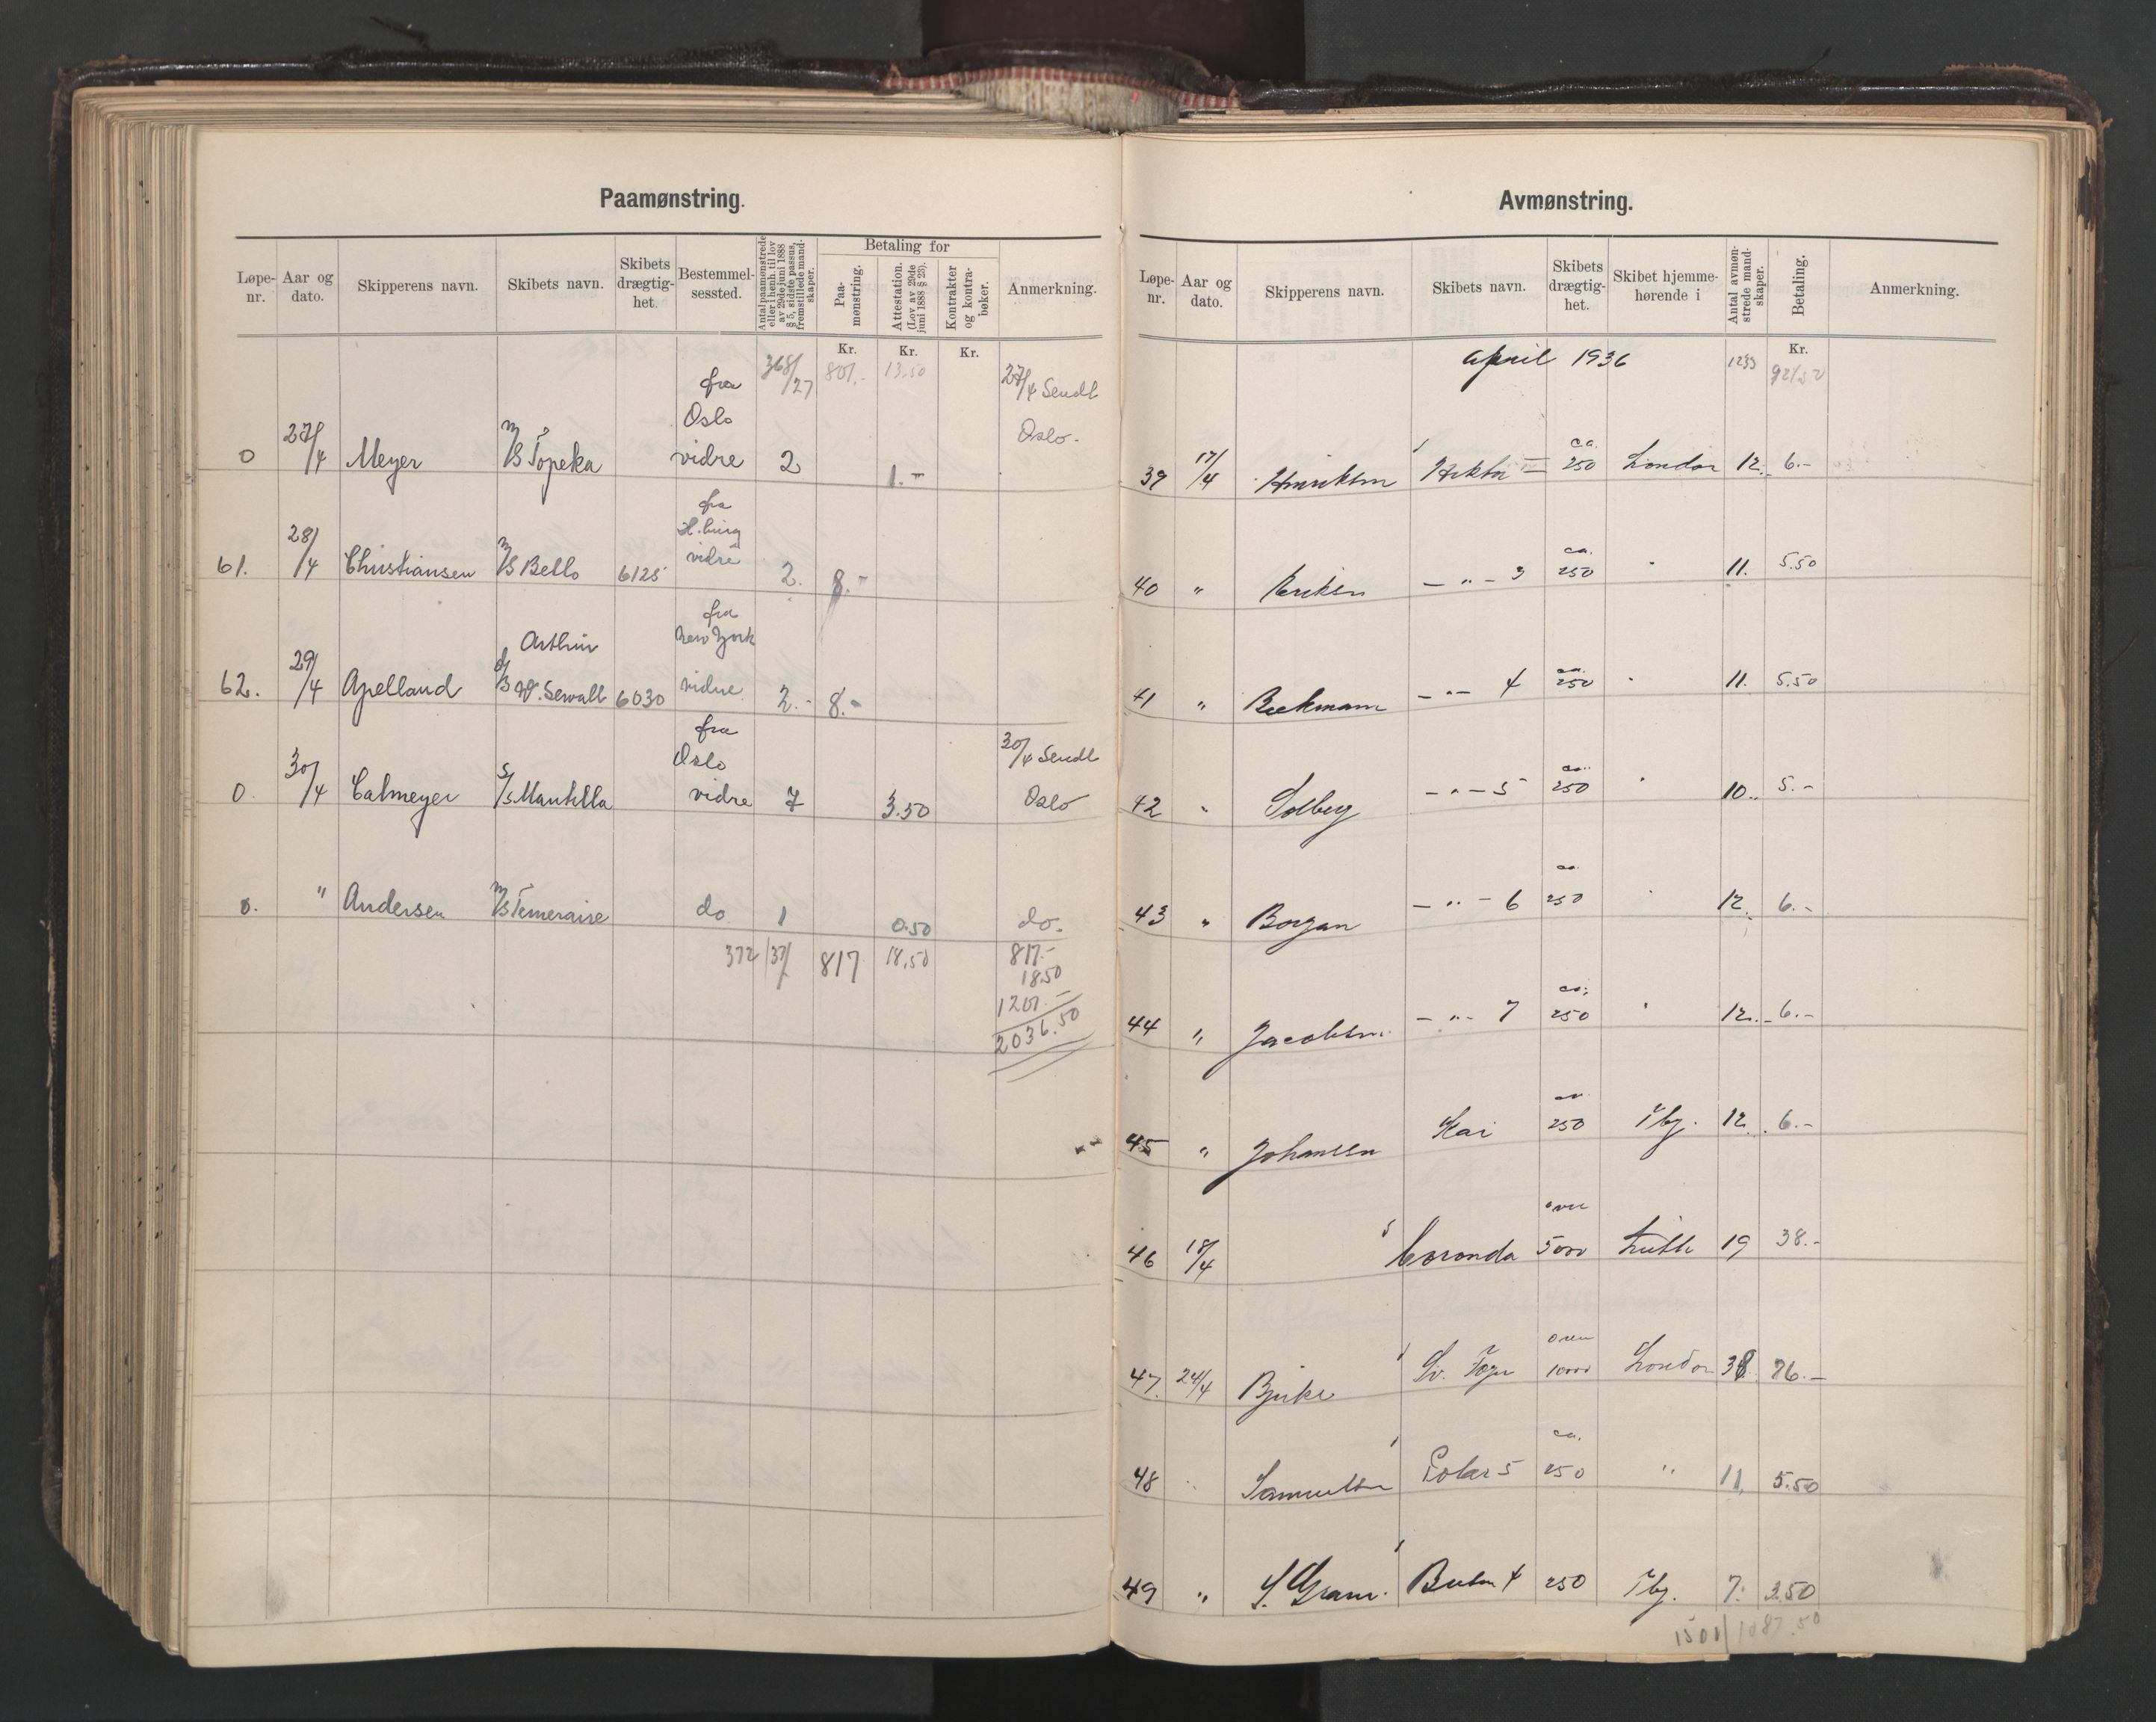 Paamønstring.
Løpe-nr. Aar og dato. Skipperens navn. Skibets navn. Skibets drægtig-het. Bestemmel-sessted. Antal paamønstrede eller i henh. til lov av 29de juni 1888 § 5, sidste passus, fremstillede mand-skaper. Betaling for Paa-mønstring. Attestation. (Lov av 29de juni 1888 § 23). Kontrakter og kontra-bøker. Anmerkning.
Kr. Kr. Kr.
368/27 801.- 13.50
0 27/4 Meyer M/S Topeka fra Oslo vidre 2 1.- 27/4 Sendt Oslo.
61. 28/4 Christiansen M/S Bello 6125 fra H.burg vidre 2. 8.-
62. 29/4 Apelland Arthur W. Sewall 6030 fra New York vidre 2.- 8.-
0. 30/4 Calmeyer S/S Mantilla fra Oslo vidre 7 3.50 30/4 Sendt Oslo
0. " Andersen M/S Temeraire do 1 0.50 do.
372/37/ 817 18,50 817.-
18.50
1201.-
2036.50
Avmønstring.
Løpe-nr. Aar og dato. Skipperens navn. Skibets navn. Skibets drægtig-het. Skibet hjemme-hørende i Antal avmøn-strede mand-skaper. Betaling. Anmerkning.
Kr.
april 1936 1233
39 17/4 Henriksen ca. 250 London 12. 6.-
40 " Eriksen - " - 3 ca. 250 " 11. 5.50
41 " Beckmann - " - 4 ca. 250 " 11. 5.50
42 " Solberg - " - 5 ca. 250 " 10. 5.-
43 " Borgan - " - 6 ca. 250 " 12. 6.-
44 " Jacobsen - " - 7 ca. 250 " 12. 6.-
45 " Johansen Kai ca. 250 Tbg. 12. 6.-
46 18/4 Coronda over 5000 Leith 19 38.-
47. 24/4 Bjerke Sv. Foyn over 1000 London 38 76.-
48 " Samuelsen Polar 5 ca. 250 " 11. 5.50
49 " S. Gram. 4 250 Tbg. 7. 3.50
1501/1087.50